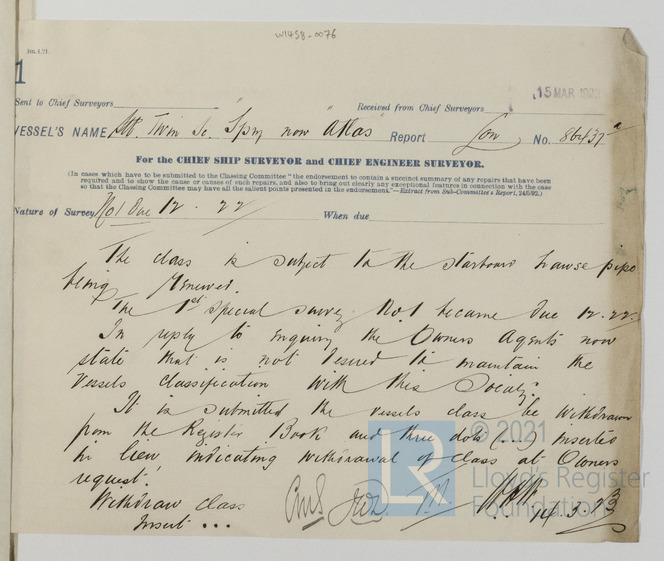 W1458-0076
1
Sent to Chief Surveyors " " Received from Chief Surveyors
15 MAR 1923
VESSEL'S NAME Twin Sc. "Spry now Atlas" Report Lon No. 86437a
For the CHIEF SHIP SURVEYOR and CHIEF ENGINEER SURVEYOR.
(In cases which have to be submitted to the Classing Committee "the endorsement to contain a succinct summary of any repairs that have been
required and to show the cause or causes of such repairs, and also to bring out clearly any exceptional features in connection with the case
so that the Classing Committee may have all the salient points presented in the endorsement."—Extract from Sub-Committee's Report, 24/5/92.)
Nature of Survey No1 Due 12.22 When due
The class is subject to the starboard hawse pipe
being renewed.
The 1st Special Survey No.1 became due 12.22.
In reply to enquiry the Owners Agents now
state that is not desired to maintain the
Vessels Classification with this Society.
It is submitted the vessels class be withdrawn
from the Register Book and three dots (...) inserted
in lieu indicating withdrawal of class at Owners
request.
Withdraw class
Insert ...
14.3.23
LR
© 2021
Lloyd's Register
Foundation